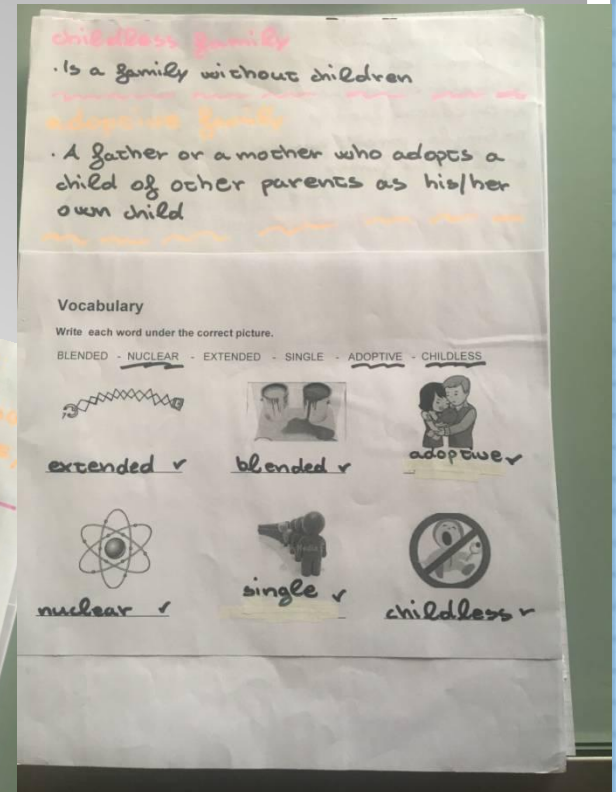 childless family
· Is a family without children
adoptive family
· A father or a mother who adopts a
child of other parents as his/her
own child
Vocabulary
Write each word under the correct picture.
BLENDED - NUCLEAR - EXTENDED - SINGLE - ADOPTIVE - CHILDLESS
extended ✓ blended ✓ adoptive ✓
nuclear ✓ single ✓ childless ✓